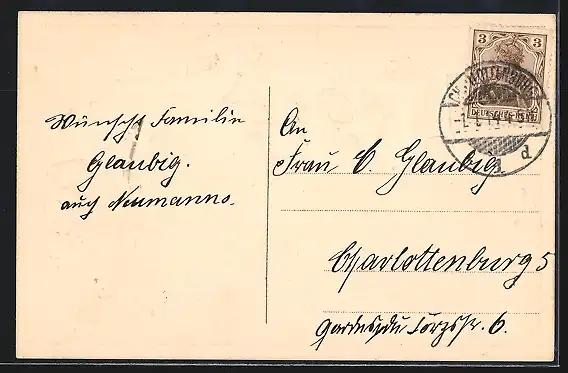 3 3
DEUTSCHES REICH
CHARLOTTENBURG
d
Wünscht Familie
Glaubig.
auch Neumanns.
An
Frau C. Glaubig
Charlottenburg 5
6.